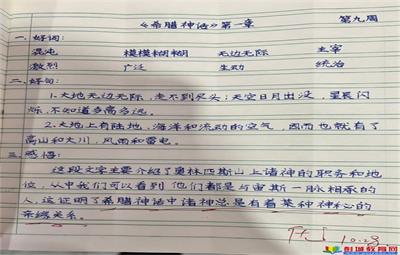 《希腊神话》第一章 第九周
一.好词:
混沌 模模糊糊 无边无际 主宰
激烈 广泛 生动 统治
二.好句:
1.大地无边无际,走不到尽头;天空日月出没,星辰闪
烁,不知道多高多远。
2.大地上有陆地、海洋和流动的空气,因而也就有了
高山和大川,风雨和雷电。
三.感悟:
这段文字主要介绍了奥林匹斯山上诸神的职务和地
位,从中我们可以看到他们都是与宙斯一脉相承的
人,这证明了希腊神话中诸神总是有着某种神秘的
亲缘关系。
10.29.
彭城教育网